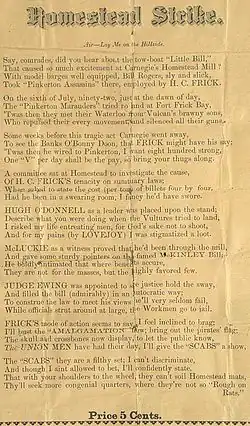 Homestead Strike.
Air—Lay Me on the Hillside.
Say, comrades, did you hear about the tow-boat "Little Bill,"
That caused so much excitement at Carnegie's Homestead Mill?
With model barges well equipped, Bill Rogers, sly and slick,
Took "Pinkerton Assassins" there, employed by H. C. FRICK.
On the sixth of July, ninety-two, just at the dawn of day,
The "Pinkerton Marauders" tried to land at Fort Frick Bay,
'Twas then they met their Waterloo from Vulcan's brawny sons,
Who repulsed their every movement and silenced all their guns.
Some weeks before this tragic act Carnegie went away,
To see the Banks O'Bonny Doon, that FRICK might have his say;
'Twas then he wired to Pinkerton, I want eight hundred strong,
One "V" per day shall be the pay, so bring your thugs along.
A committee sat at Homestead to investigate the cause,
Of H. C. FRICK'S tenacity on summary laws;
When asked to state the cost per ton, of billets four by four,
Had he been in a swearing room, I fancy he'd have swore.
HUGH O'DONNELL as a leader was placed upon the stand;
Describe what you were doing when the Vultures tried to land,
I risked my life entreating men, for God's sake do not shoot,
And for my pains (by LOVEJOY) I was stigmatized a loot.
McLUCKIE as a witness proved that he'd been through the mill,
And gave some sturdy pointers on the famed McKINLEY Bill;
He boldly intimated that where benefits accrue,
They are not for the masses, but the highly favored few.
JUDGE EWING was appointed to see justice hold the sway,
And filled the bill (admirably) in an autocratic way;
To construe the law to meet his views he'll very seldom fail,
While officials strut around at large, the Workmen go to jail.
FRICK'S mode of action seems to say I feel inclined to brag;
I'll bust the AMALGAMATION now; bring out the pirates' flag;
The skull and crossbones now display, to let the public know,
The UNION MEN have had their day, I'll give the "SCABS" a show.
The "SCABS" they are a filthy set; I can't discriminate,
And though I aint allowed to bet, I'll confidently state.
That with your shoulders to the wheel, they can't soil Homestead mats,
Thy'll seek more congenial quarters, where they're not so "Rough on
Rats."
Price 5 Cents.